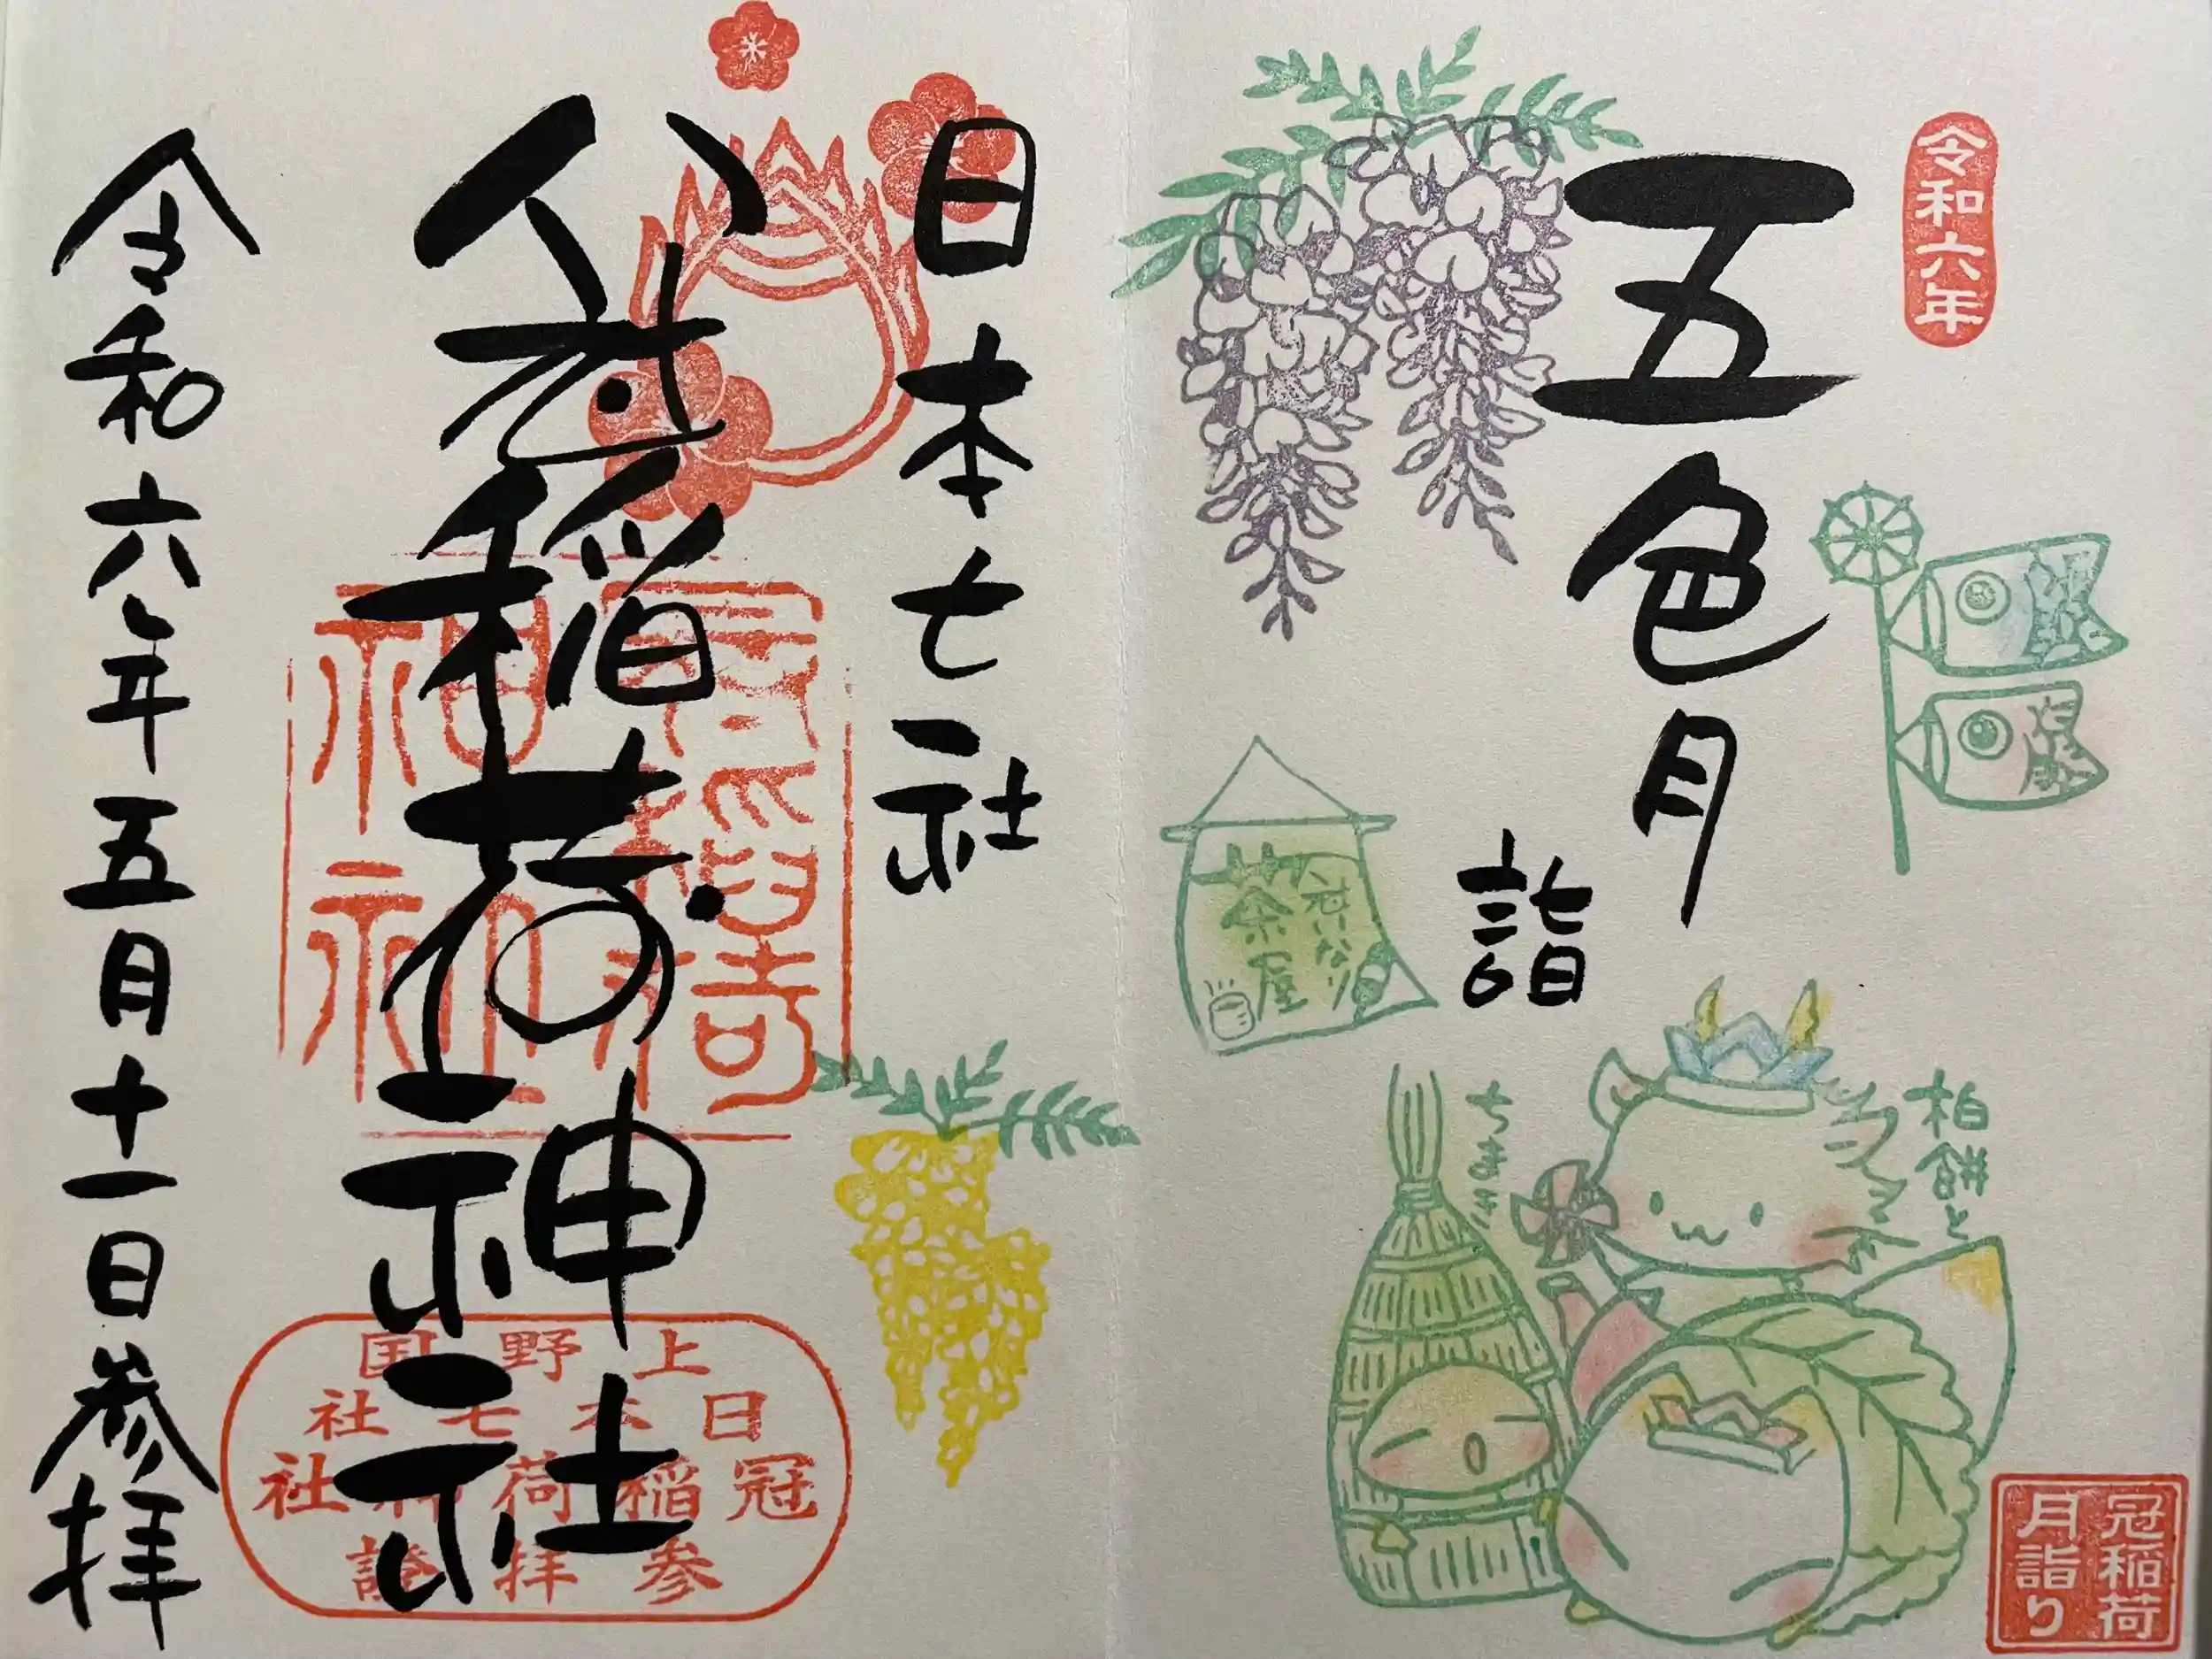 令和六年
五色月
詣
冠いなり
茶屋
柏餅と
ちまき
冠稲荷
月詣り
日本七社
冠稲荷神社
令和六年五月十一日参拝
冠稲荷
神社
上野国
日本七社
冠稲荷神社
参拝證